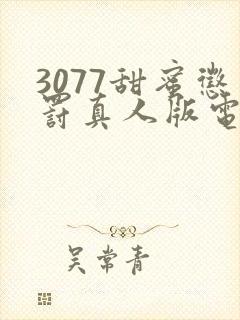 3077甜蜜懲
罰真人版電
吴常青